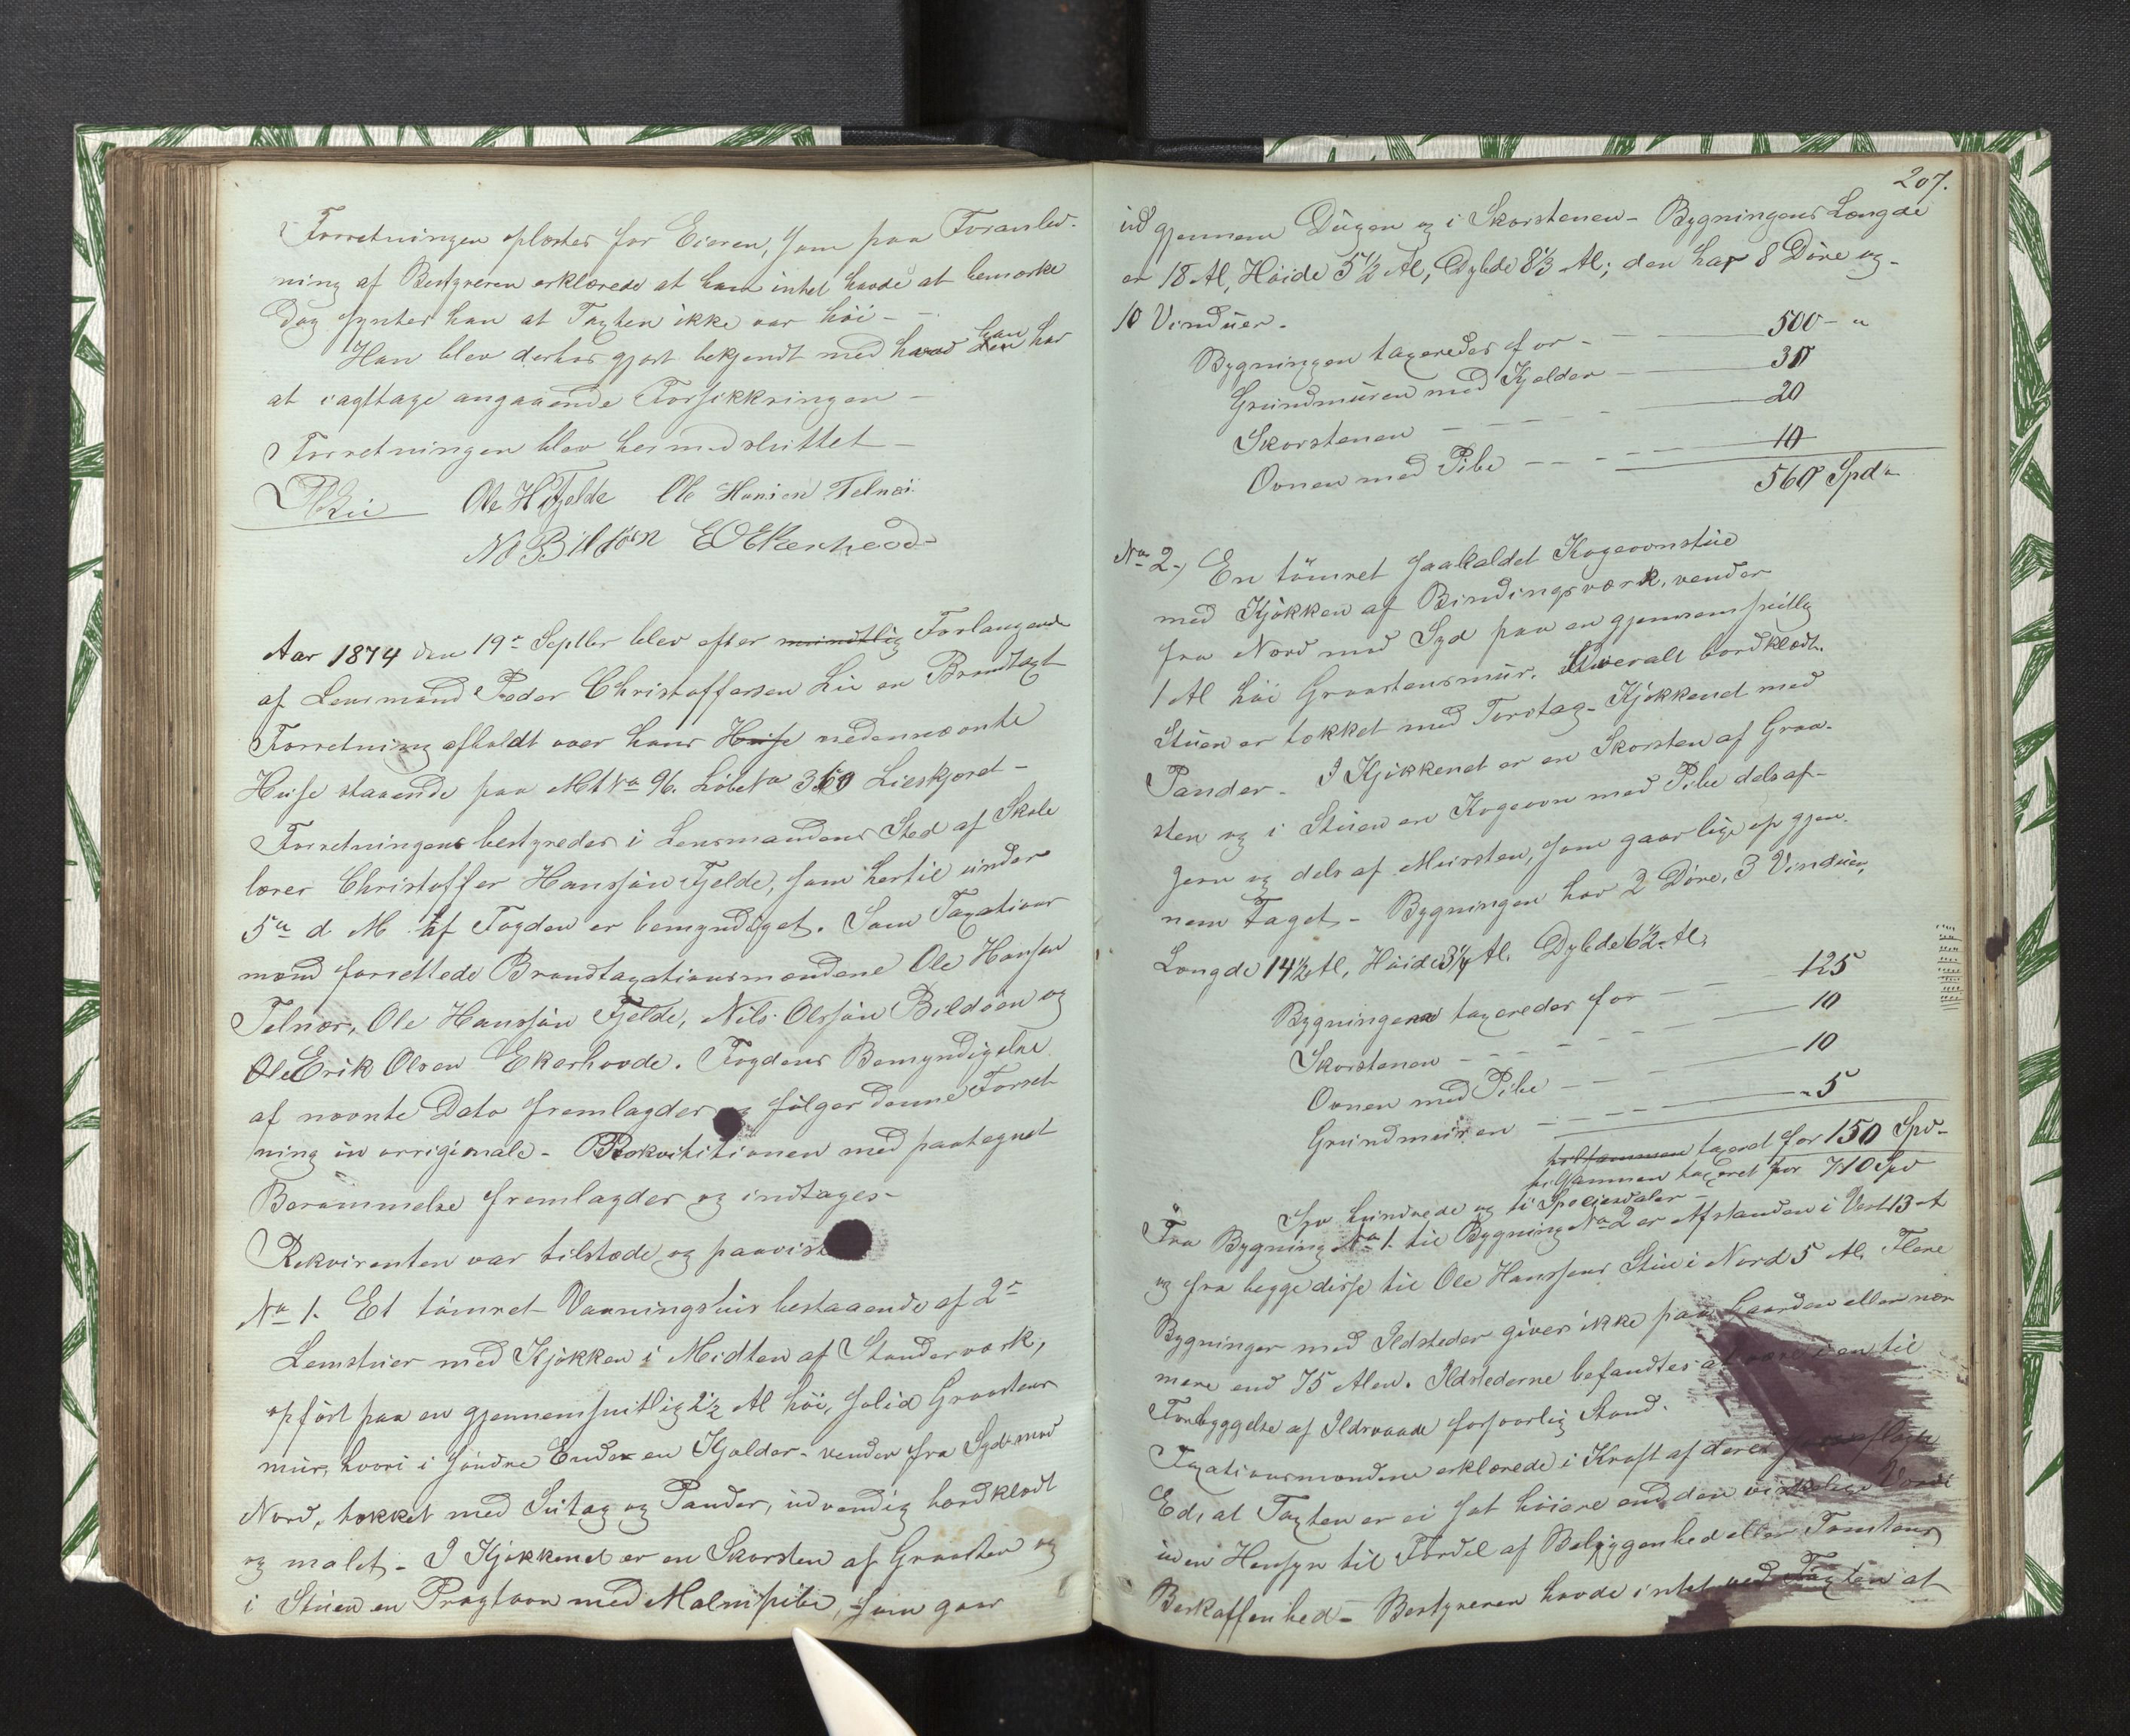 Forretningen oplæstes for Eieren, som paa Foranled-
ning af Bestyreren erklærede at han intet havde at bemærke
dog syntes han at Taxten ikke var höi -
Han blev derhos gjort bekjendt med hvad han har
at iagttage angaaende Forsikkringen -
Forretningen blev hermed sluttet -
Ole H Fjelde Ole Hansen Telnæs
N O Bildöen E O Ekerhovd
Aar 1874 den 19de Septbr blev efter mundtlig Forlangende
af Lensmand Peder Christoffersen Lie en Brandtaxt
Forretning afholdt over hans Huse nedennævnte
Huse staaende paa Mt No 96. Löbe No 360 Lieskjæret -
Forretningens bestyredes i Lensmandens Sted af Skole
lærer Christoffer Hanssön Fjelde, som hertil under
5te d. M. af Fogden er bemyndiget. Som Taxations
mænd forrettede Brandtaxationsmændene Ole Hansen
Telnæs, Ole Hanssön Fjelde, Nils Olssön Bildöen og
Ole Erik Olsen Ekerhovde. Fogdens Bemyndigelse
af nævnte Dato fremlagdes og fölger denne Forret
ning in originale - Rekvisitionen med paategnet
Berammelse fremlagdes og indtages -
Rekvirenten var tilstæde og paaviste
No 1. Et tömret Vaaningshus bestaaende af 2de
Lemstuer med Kjökken i Midten af Standerværk,
opfört paa en gjennemsnitlig 2½ Al höi, solid Graastens
mur, hvori i söndre Ende er en Kjelder - vender fra Syd mod
Nord, tækket med Sutag og Pander, udvendig bordklædt
og malet - I Kjökkenet er en Skorsten af Graasten og
i Stuen en Pragtovn med Malmpibe, som gaar
207.
ud gjennem Dugen og i Skorstenen - Bygningens Længde
er 18 Al, Höide 5½ Al, Dybde 8⅓ Al; den har 8 Döre og -
10 Vinduer.
Bygningen taxeredes for - 500 - "
Grundmuren med Kjelder - 30
Skorstenen - 20
Ovnen med Pibe - 10
560 Spd "
No 2, En tömret saakaldet Kogeovnstue
med Kjökken af Bindingsværk, vender
fra Nord mod Syd paa en gjennemsnitlig
1 Al höi Graastensmur. Overalt bordklædt.
Stuen er tækket med Torvtag - Kjökkenet med
Pander - I Kjökkenet er en Skorsten af Graa-
sten og i Stuen en Kogeovn med Pibe dels af
Jern og dels af Mursten, som gaar lige op gjen-
nem Taget - Bygningen har 2 Döre, 3 Vinduer,
Længde 14½ Al, Höide 3¼ Al. Dybde 6½ Al.
Bygningen taxeredes for - 125
Skorstenen - 10
Ovnen med Pibe - 10
Grundmuren - 5
tilsammen taxeret for 150 Spd -
tilsammen taxeret for 710 Spd
Syv hundrede og ti Speciesdaler -
Fra Bygning No 1. til Bygning No 2 er Afstanden i Vest 13 Al
og fra begge disse til Ole Hanssens Stue i Nord 5 Al. Flere
Bygninger med Ildsteder gives ikke paa Gaarden eller nær
mere end 75 Alen. Ildstederne befandtes at være i en til
Forebyggelse af Ildsvaade forsvarlig Stand.
Taxationsmændene erklærede i Kraft af deres aflagte
Ed, at Taxten er ei sat höiere end den virkelige Værdi
uden Hensyn til Fordel af Beliggenhed eller Tomtens
Beskaffenhed - Bestyreren havde intet ved Taxten at